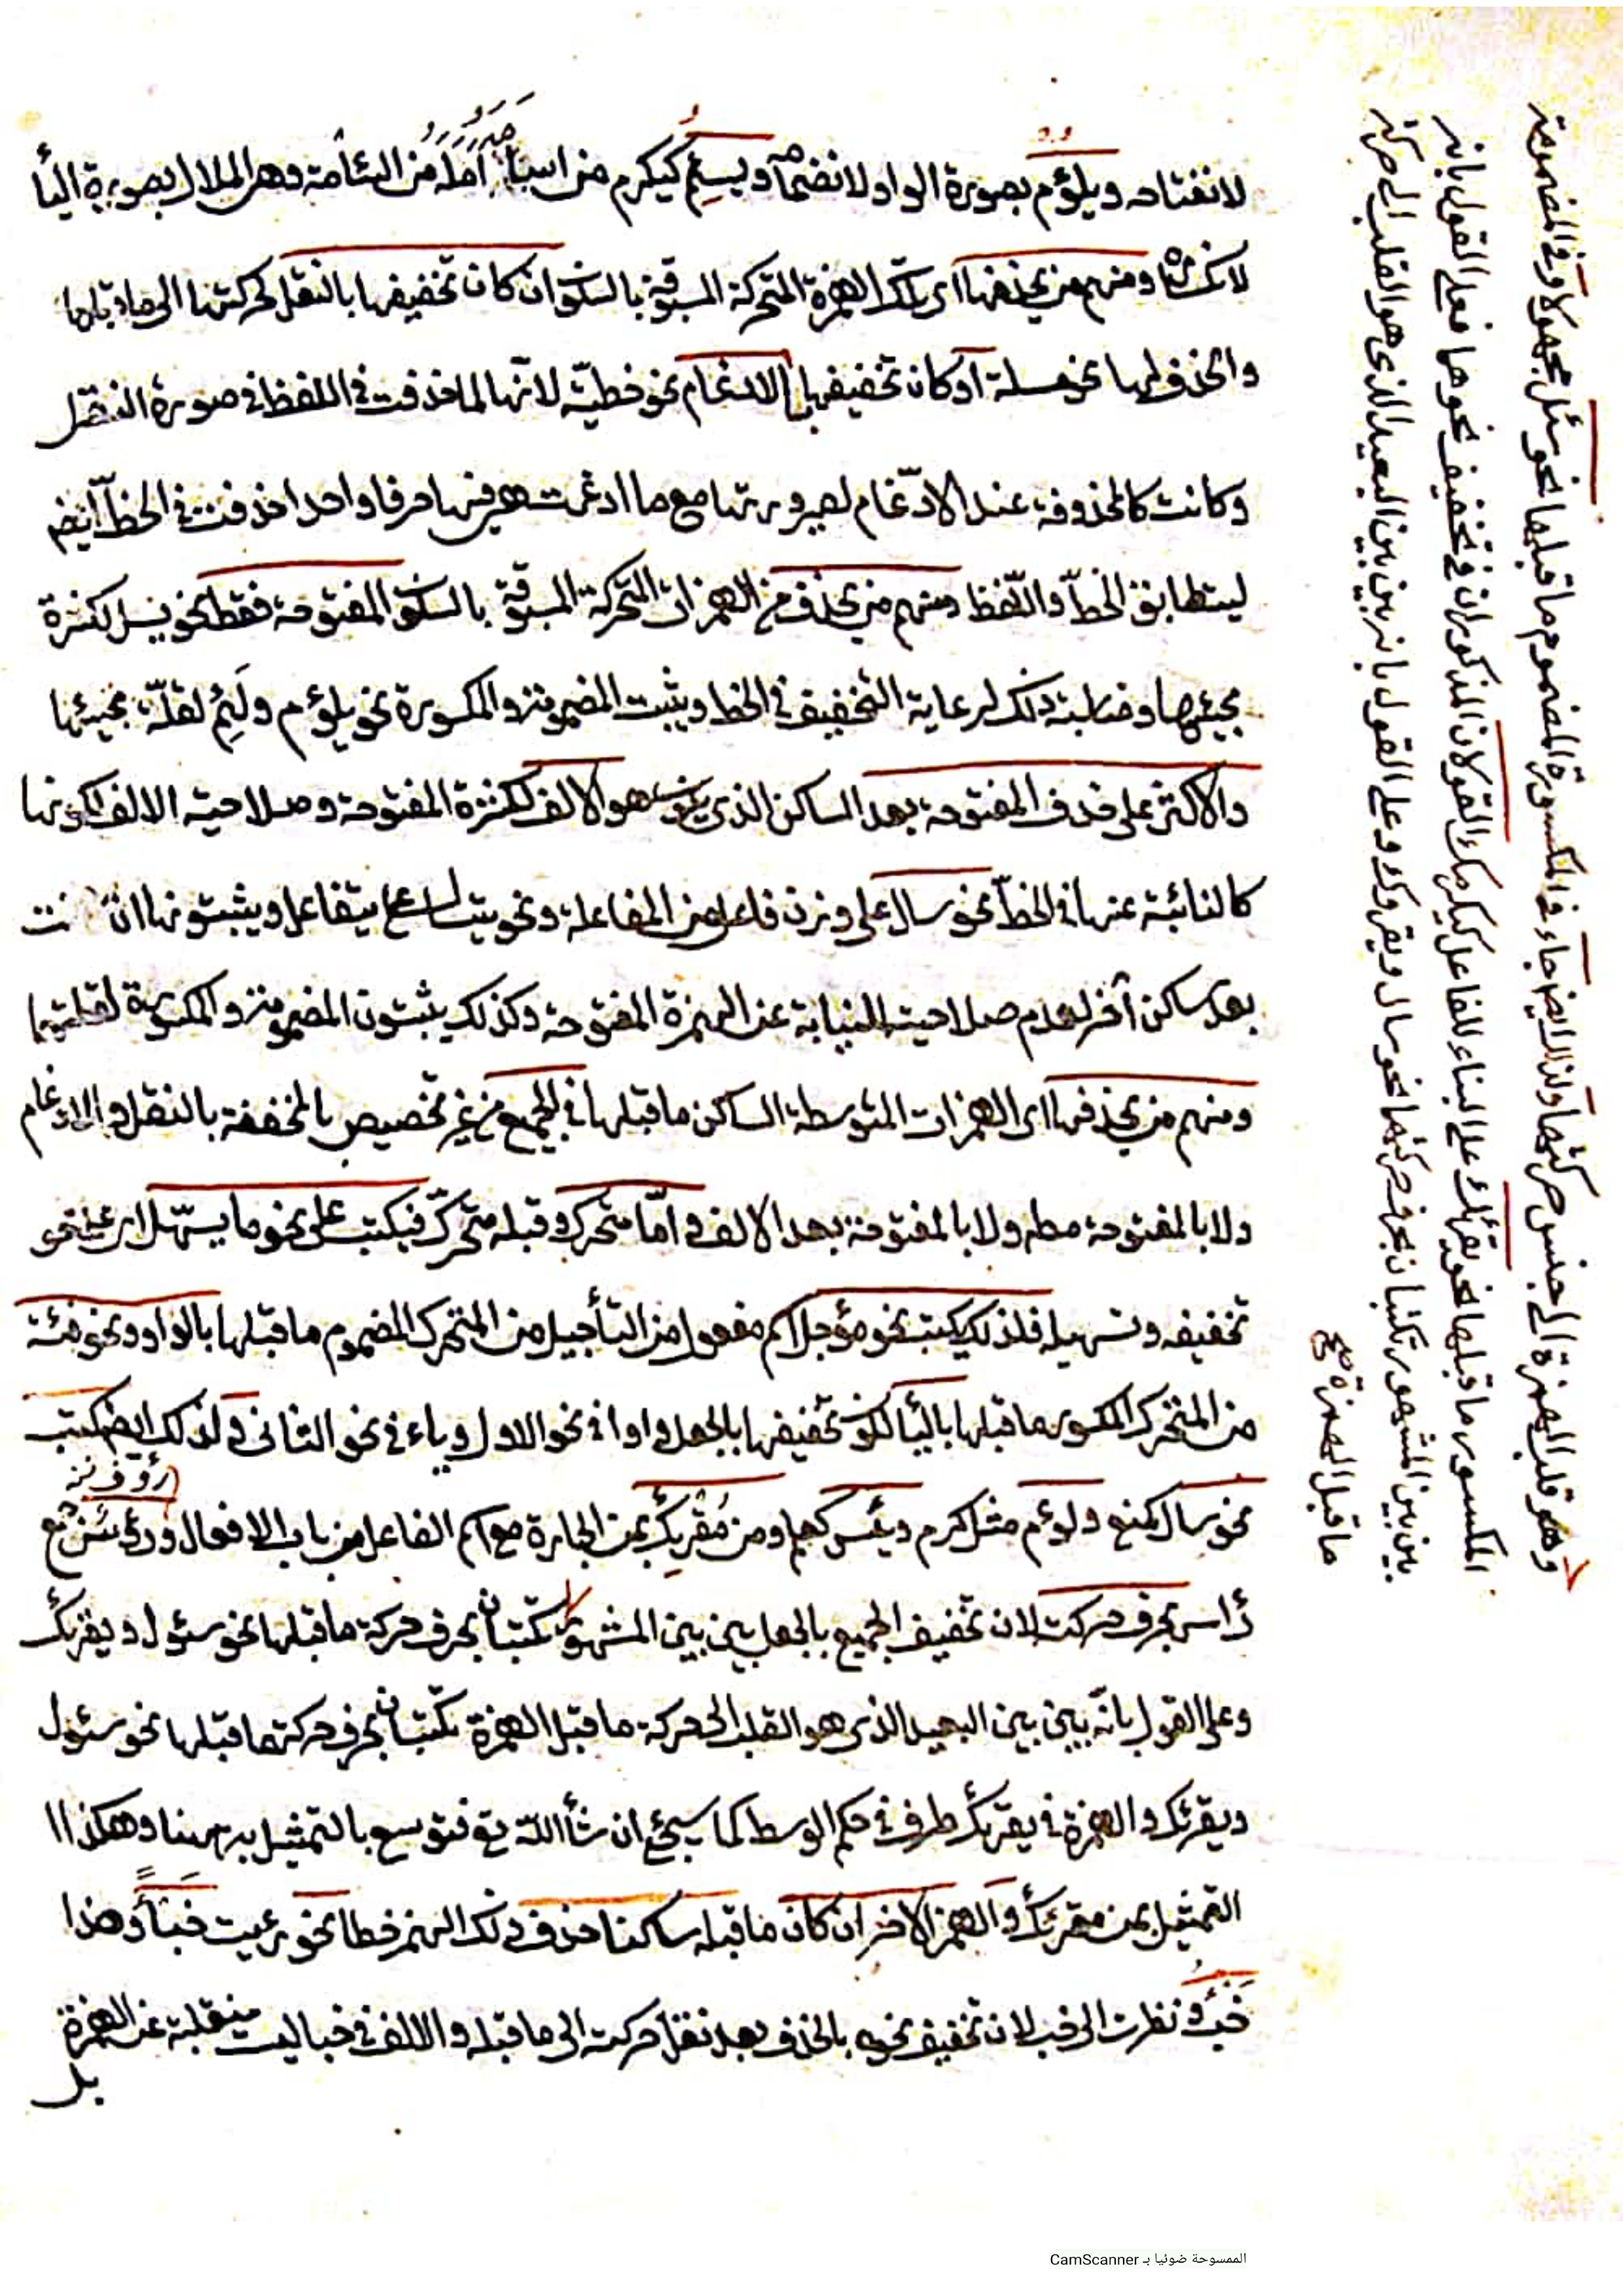 لانفتاحه ويلؤم بصورة الواو لانضمامها ويسئم كيكرم من اسأمه امله من السّأمة وهى الملال بصورة اليأ
لانكسارها ومنهم من يحذفها اى تلك الهمزة المتحركة المسبوقة بالسكون ان كان تخفيفها بالنقل لحركتها الى ما قبلها
والحذف لها نحو مسلة او كان تخفيفها بالادغام نحو خطيّة لانّها لما حذفت فى اللفظ فى صورة النقل
وكانت كالمحذوفة عند الادّغام لصيرورتها مع ما ادغمت هى فيها حرفا واحدا حذفت فى الخطّ ايضا
ليتطابق الخطّ واللّفظ ومنهم من يحذف من الهمزات المتحركة المسبوقة بالسكون المفتوحة فقط نحو يسل لكثرة
مجيئها ومناسبة ذلك لرعاية التخفيف فى الخط ويثبت المضمومة والمكسورة نحو يلؤم ويسئم لقلّة مجيئها
والاكثر على حذف المفتوحة بعد الساكن الذى هو الالف لكثرة المفتوحة وصلاحية الالف لكونها
كالنائبة عنها فى الخطّ نحو سال على وزن فاعل من المفاعلة ونحو يتسال يتفاعل ويثبتونها ان كانت
بعد ساكن آخر لعدم صلاحيته للنيابة عن الهمزة المفتوحة وكذلك يثبتون المضمومة والمكسورة لقلتهما
ومنهم من يحذفها اى الهمزات المتوسطة الساكن ما قبلها فى الجميع من غير تخصيص بالمخففة بالنقل والادغام
ولا بالمفتوحة مط ولا بالمفتوحة بعد الالف وامّا متحرك وقبله متحرّك فيكتب على نحو ما يسهّل اى على نحو
تخفيفه وتسهيله فلذلك كتب نحو مؤجل اسم مفعول من التأجيل من المتحرك المضموم ما قبلها بالواو ونحو فئة
من المتحرك المكسور ما قبلها باليأ لكون تخفيفها بالجعل واوا فى نحو الاول وياء فى نحو الثانى ولذلك ايضا كتب
رؤوف نز
نحو سال كمنع ولؤم مثل كرم ويئس كعلم ومن مقرئك بمن الجارة مع اسم الفاعل من باب الافعال ورؤس جمع
رأس بحرف حركته لان تخفيف الجميع بالجعل بين بين المشهور تكتبان بحرف حركة ما قبلها نحو سئول ويقرئك
وعلى القول بانّه بين بين البعيد الذى هو القلب الى حركة ما قبل الهمزة تكتبان بحرف حركة ما قبلها نحو سئول
ويقرئك والهمزة فى يقرئك طرف فى حكم الوسط كما سيجئ ان شأ الله تع فتوسع بالتمثيل به هنا وهكذا
التمثيل بمن مقرئك والهمز الاخر ان كان ما قبله ساكنا حذف ذلك الهمز خطا نحو رئيت خبئاً وهذا
خبءٌ ونظرت الى خبء لان تخفيف نحوه بالحذف بعد نقل حركته الى ما قبله والالف فى خبا ليست منقلبة عن الهمزة
بل
وهو قلب الهمزة الى جنس حركتها ولذا ايضا جاء فى المكسورة المضموم ما قبلها نحو سئل مجهولا وفى المضمومة
المكسور ما قبلها نحو يقرئك على البناء للفاعل كيكرمك القولان المذكوران فى تخفيف نحوها فعلى القول بانه
بين بين المشهور تكتبان بحرف حركتهما نحو سال ويقروك وعلى القول بانه بين بين البعيد الذى هو القلب الى حركة
ما قبل الهمزة صح
الممسوحة ضوئيا بـ CamScanner